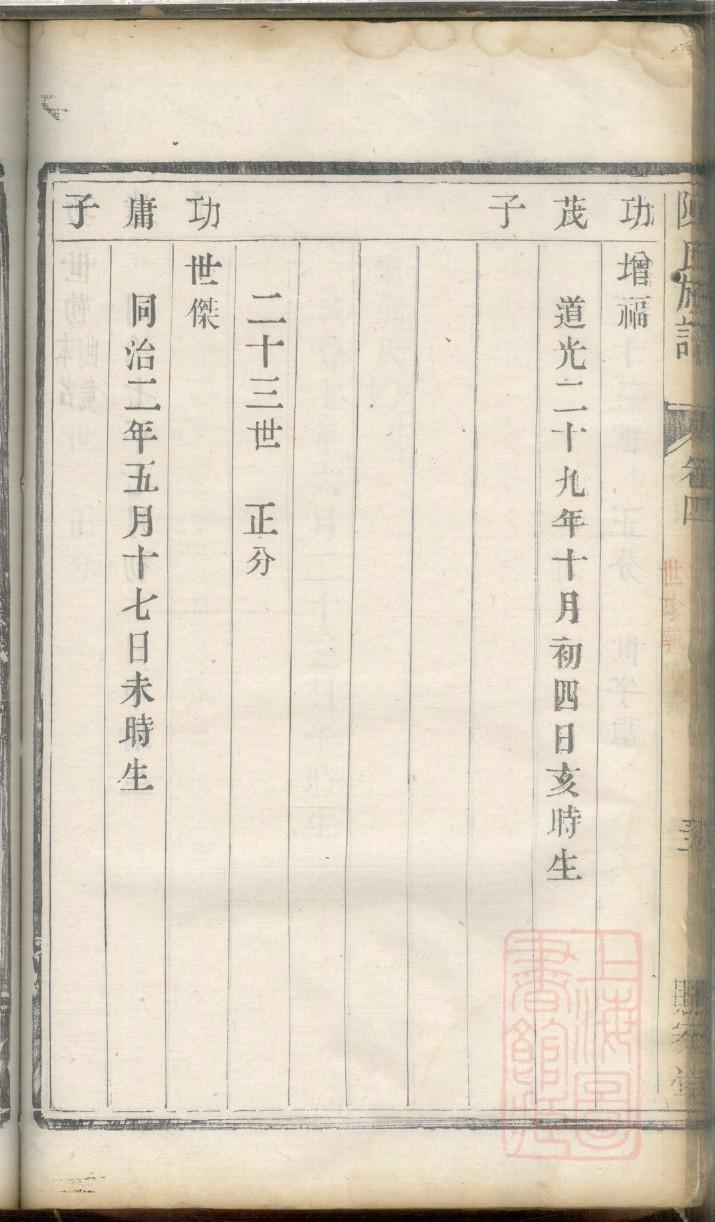 陳氏族譜
卷四
功茂子
增福
道光二十九年十月初四日亥時生
二十三世　正分
功庸子
世傑
同治二年五月十七日未時生
上海圖書館藏